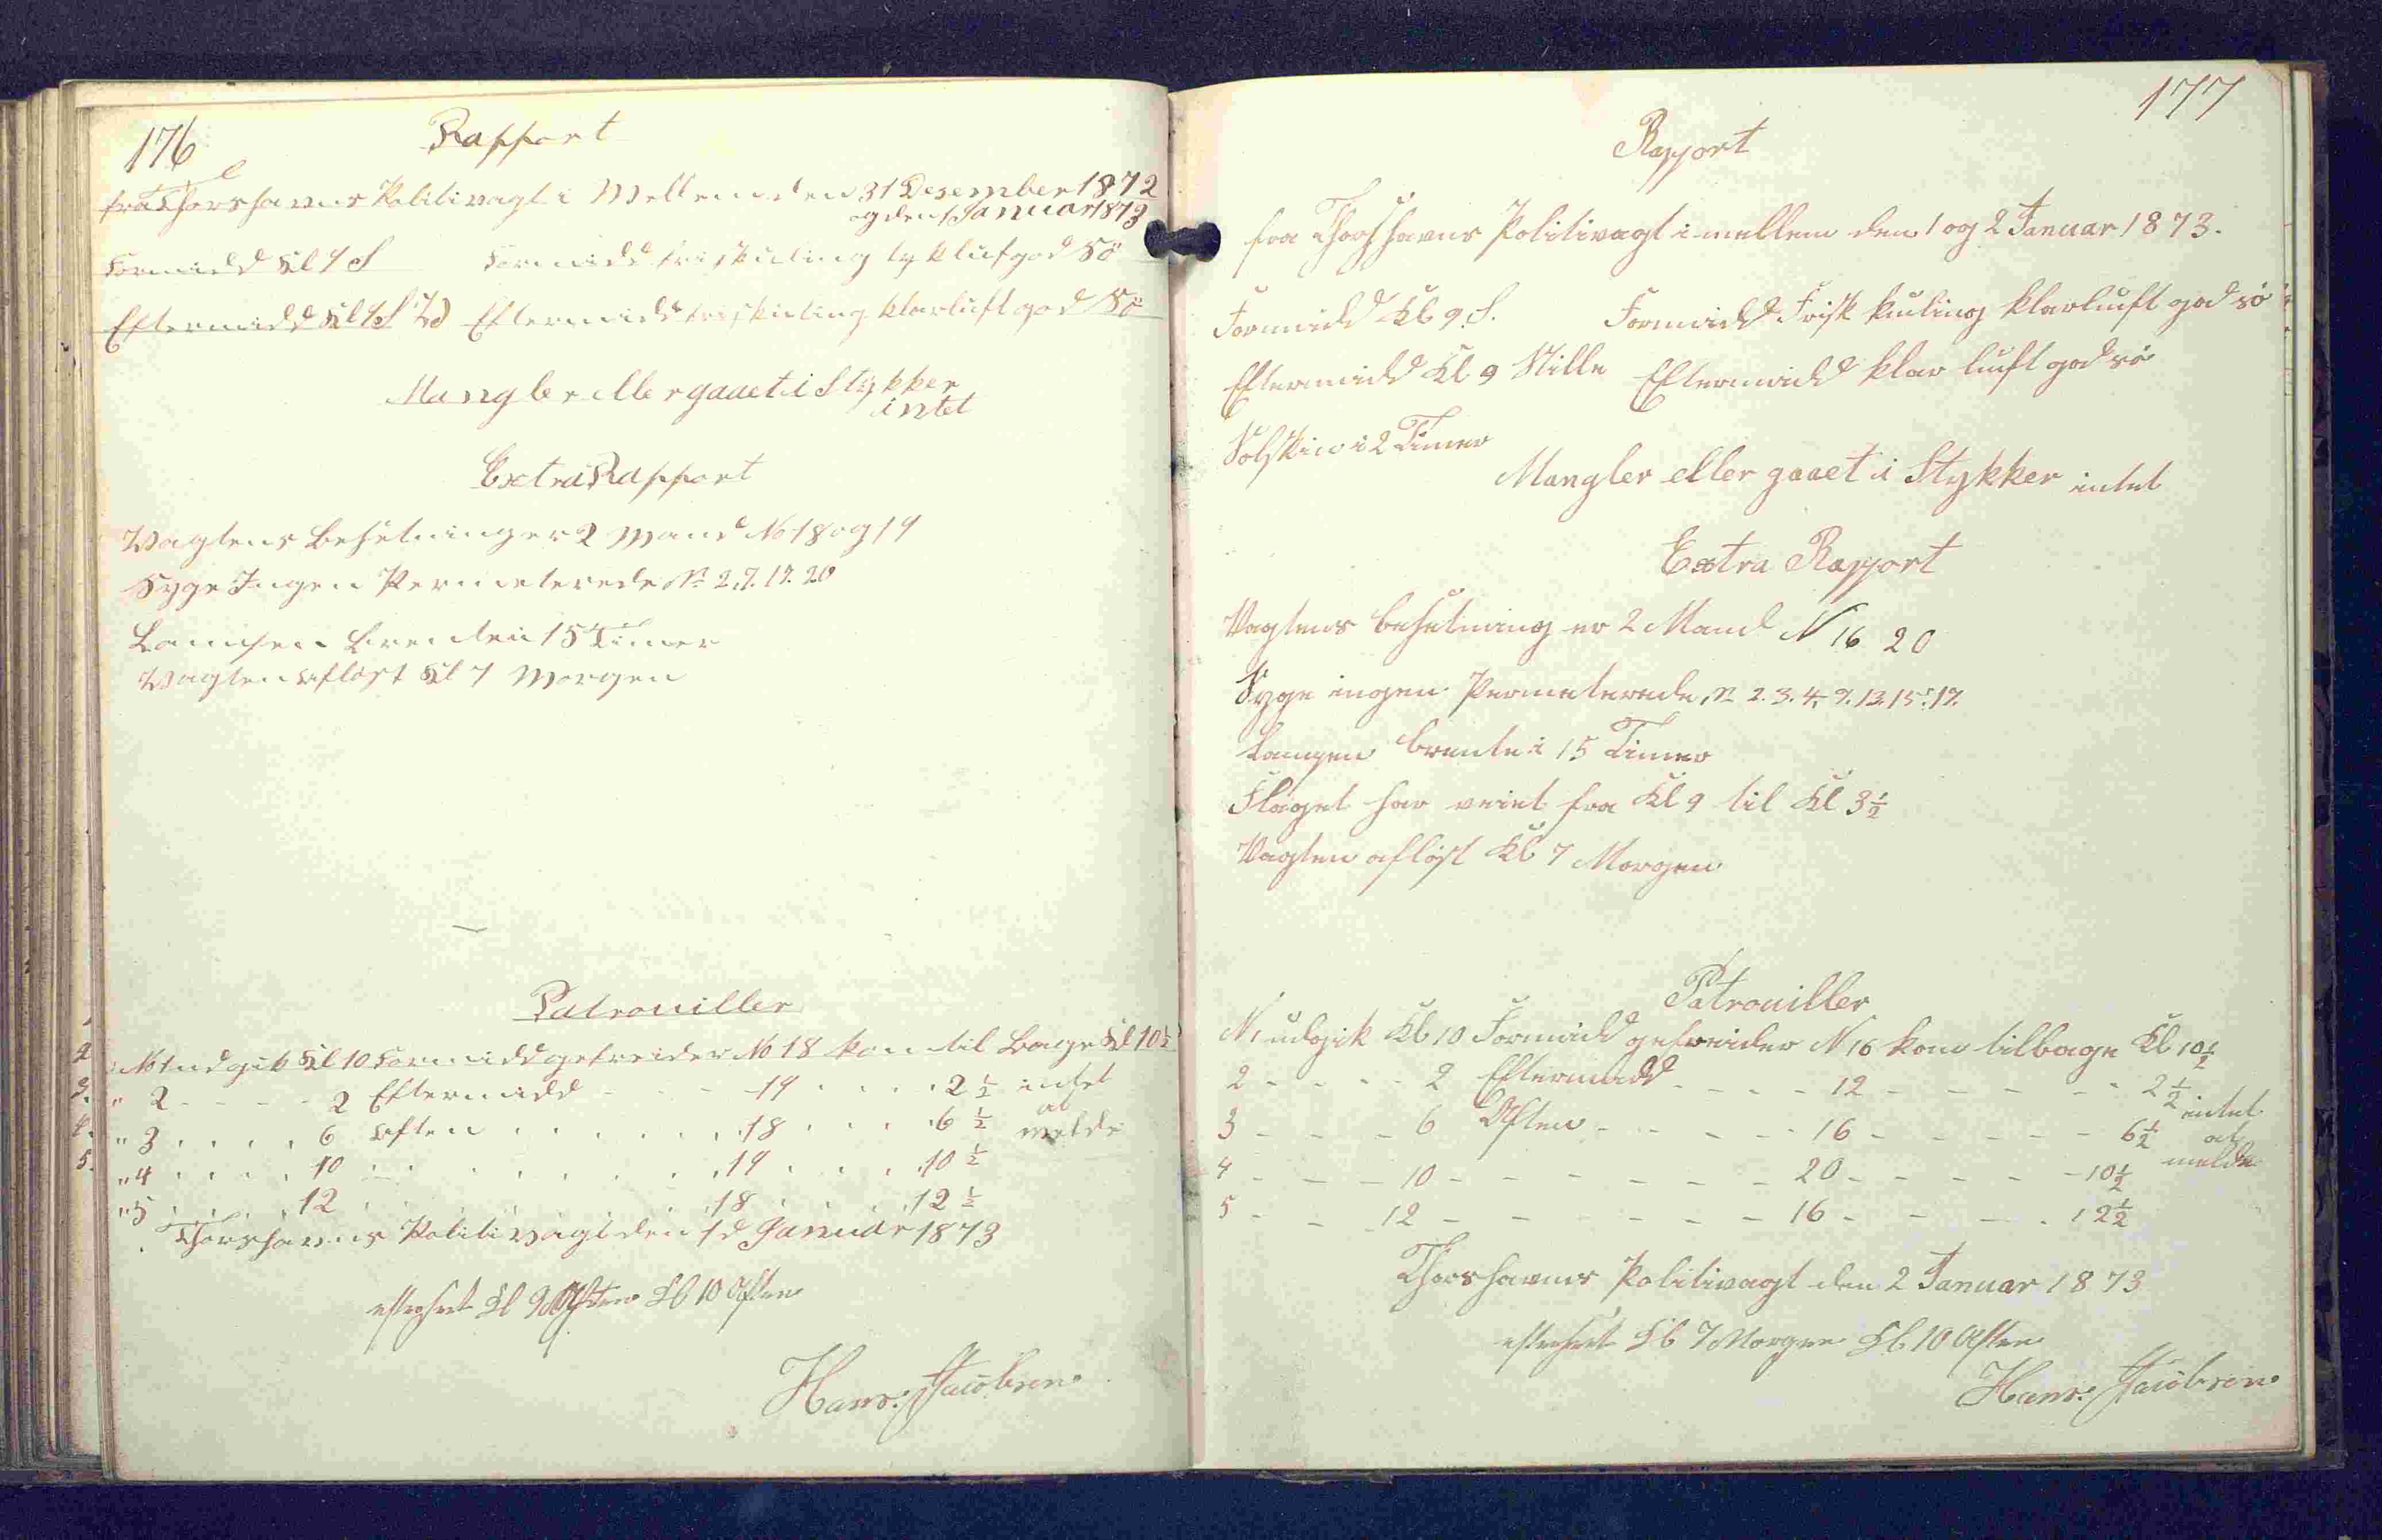 176
Rapport
fra Thorshavns Politivagt i Mellem den 31 Desember 1872
og den 1 Januar 1873
Formidd Kl 9 S Formidd frisk kuling tyk luft god Sö
Eftermidd Kl 9 S Eftermidd frisk kuling klar luft god Sö
Mangler eller gaaet i Stykker
intet
Extra Rapport
Vagtens Besetning er 2 Mand No 18 og 19
Syge Ingen Permeterede No 2. 9. 17. 20
Lampen Brendte i 15 Timer
Vagten aflöst Kl 7 Morgen
Patrouiller
No 1 udgik Kl 10 Formidd gefreider No 18 kom til Bage Kl 10½
" 2 - - - - 2 Eftermidd - - - 19 . . . . 2½ intet
" 3 . . . . 6 Aften . . . . . . 18 . . . . 6½ at melde
" 4 . . . . 10 . . . . . . . 19 . . . . 10½
" 5 . . . . 12 . . . . . . . 18 . . . . 12½
Thorshavns Politivagt den 1d Januar 1873
Kl 9 Aften Kl 10 Aften
Hans. Jacobsen.
177
Rapport
fra Thorshavns Politivagt i mellem den 1 og 2 Januar 1873.
Formidd Kl 9. S. Formidd Frisk kuling klar luft god sö
Eftermidd Kl 9 Stille Eftermidd klar luft god sö
Solskin i 2 Timer
Mangler eller gaaet i Stykker intet
Extra Rapport
Vagtens besetning er 2 Mand N 16 20
Syge ingen Permeterede, No 2. 3. 4. 9. 13. 15. 17.
Lampen brente i 15 Timer
Flaget har veiet fra Kl 9 til Kl 3½
Vagten aflöst Kl 7 Morgen
Patrouiller
N 1 udgik Kl 10 Formidd gefreider N 16 kom tilbage Kl 10½
2 - - - - 2 Eftermidd - - - - 12 - - - - - 2½ intet
3 - - - 6 Aften - - - - - 16 - - - - - 6½ at
4 - - - 10 - - - - - - - 20 - - - - - 10½ melde
5 - - 12 - - - - - - - 16 - - - - 12½
Thorshavns Politivagt den 2 Januar 1873
Kl 7 Morgen Kl 10 Aften
Hans. Jacobsen.